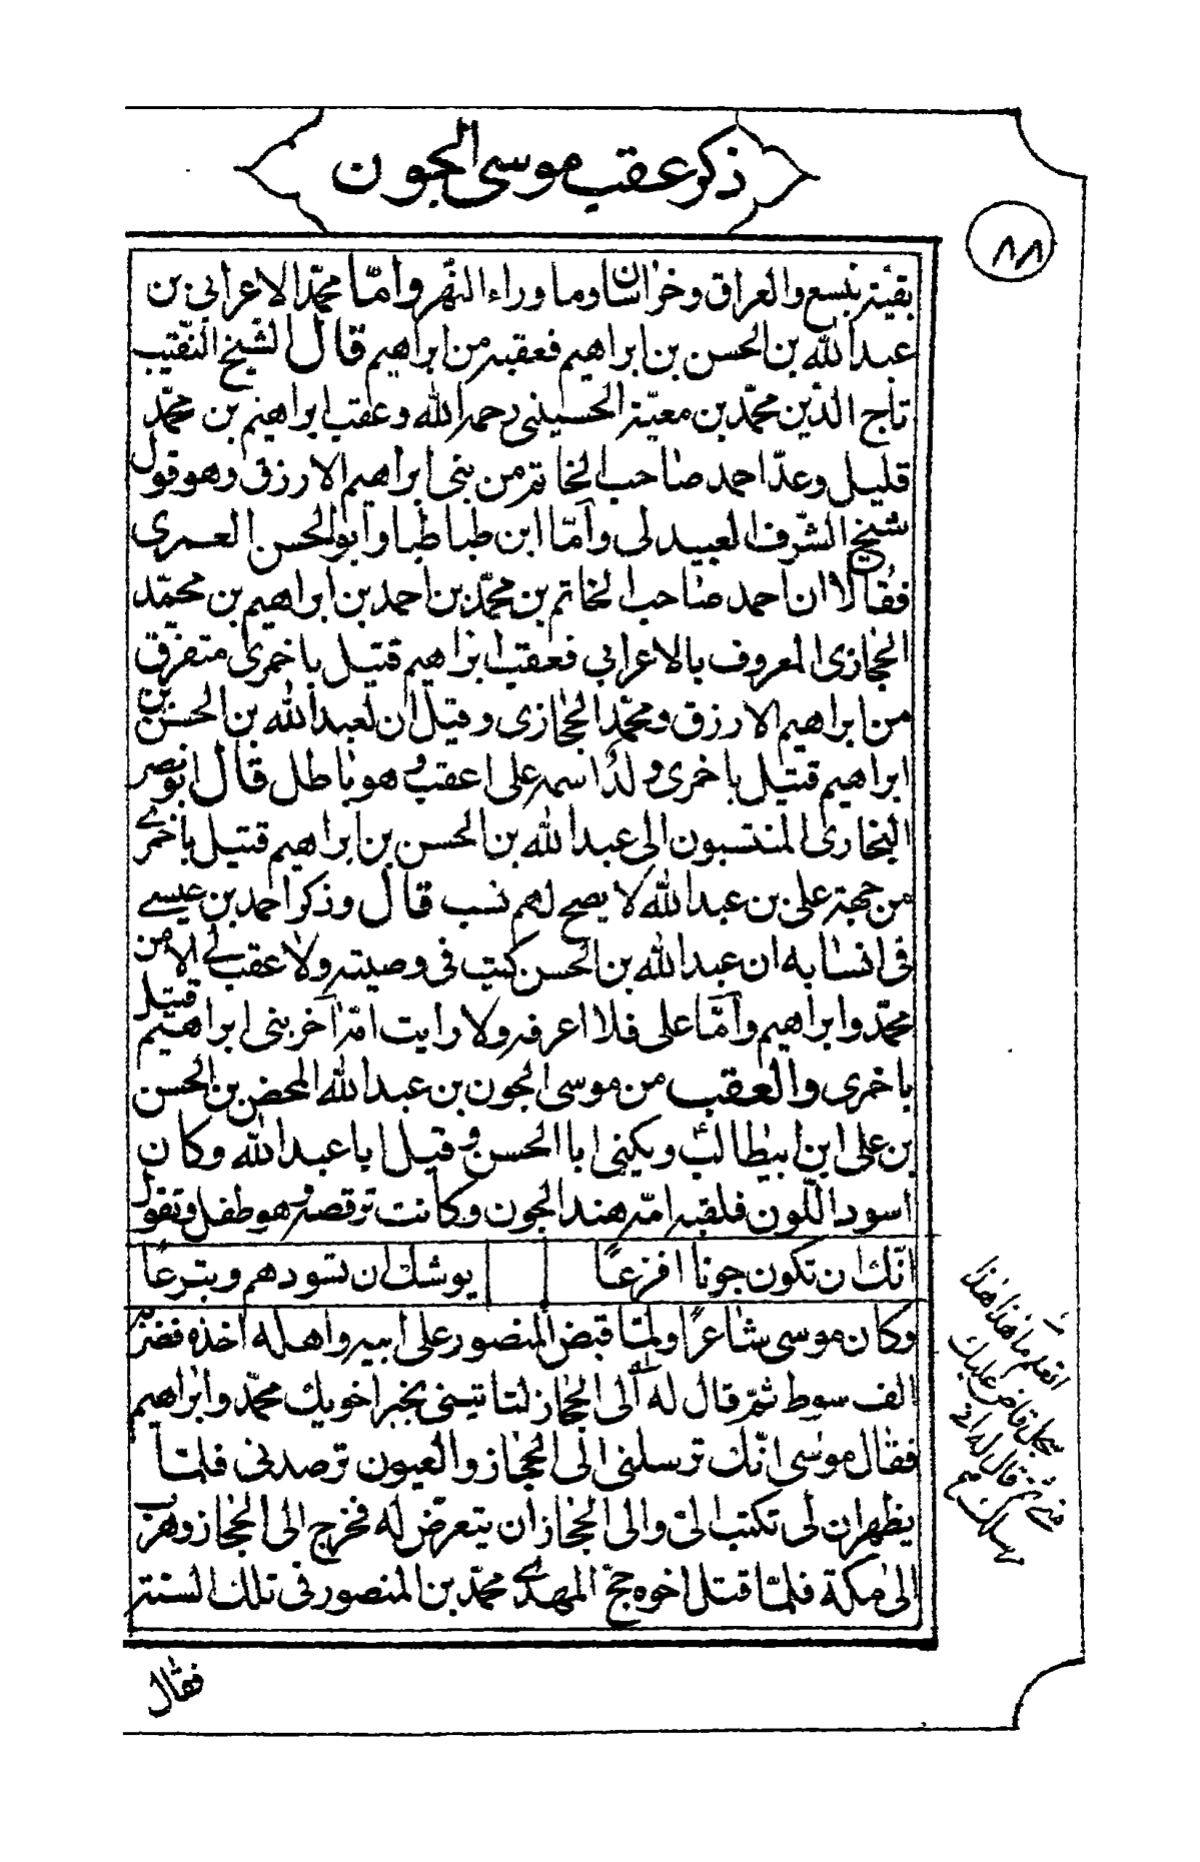 ذكر عقب موسى الجون
٨٨
بقية بينبع والعراق وخراسان وما وراء النهر وامّا محمّد الاعرابى بن
عبد الله بن الحسن بن ابراهيم فعقبه من ابراهيم قال الشيخ النقيب
تاج الدّين محمّد بن معيّة الحسينى رحمه الله وعقب ابراهيم بن محمّد
قليل وعدّ احمد صاحب الخاتم من بنى ابراهيم الازرق وهو قول
شيخ الشّرف العبيدلى وامّا ابن طباطبا وابو الحسن العمرى
فقالا ان احمد صاحب الخاتم بن محمّد بن احمد بن ابراهيم بن محمّد
الحجازى المعروف بالاعرابى فعقب ابراهيم قتيل باخمرى متفرق
من ابراهيم الازرق ومحمّد الحجازى وقيل ان لعبد الله بن الحسن بن
ابراهيم قتيل باخمرى ولدًا اسمه على اعقب وهو باطل قال ابو نصر
البخارى المنتسبون الى عبد الله بن الحسن بن ابراهيم قتيل باخمرى
من جهة على بن عبد الله لا يصح لهم نسب قال وذكر احمد بن عيسى
فى انسابه ان عبد الله بن الحسن كتب فى وصيته ولا عقب لى الا من
محمّد وابراهيم وامّا على فلا اعرفه ولا رايت امّه آخر بنى ابراهيم قتيل
باخمرى والعقب من موسى الجون بن عبد الله المحض بن الحسن
بن على ابن ابيطالب ويكنى ابا الحسن وقيل ابا عبد الله وكان
اسود اللّون فلقبه امّه هند الجون وكانت ترقصه وهو طفل وتقول
انّك ان تكون جونا افزعًا يوشك ان تسودهم وتبرعًا
وكان موسى شاعرًا ولمّا قبض المنصور على ابيه واهله اخذه فضربه
الف سوط ثمّ قال له الى الحجاز لتاتينى بخبر اخويك محمّد وابراهيم
فقال موسى انّك ترسلنى الى الحجاز والعيون ترصدنى فلمّا
يظهران لى تكتب الى والى الحجاز ان يتعرّض له فخرج الى الحجاز وهرب
الى مكة فلمّا قتل اخوه حجّ المهدى محمّد بن المنصور فى تلك السنة
اتعلم ما هذا هذا
فقال